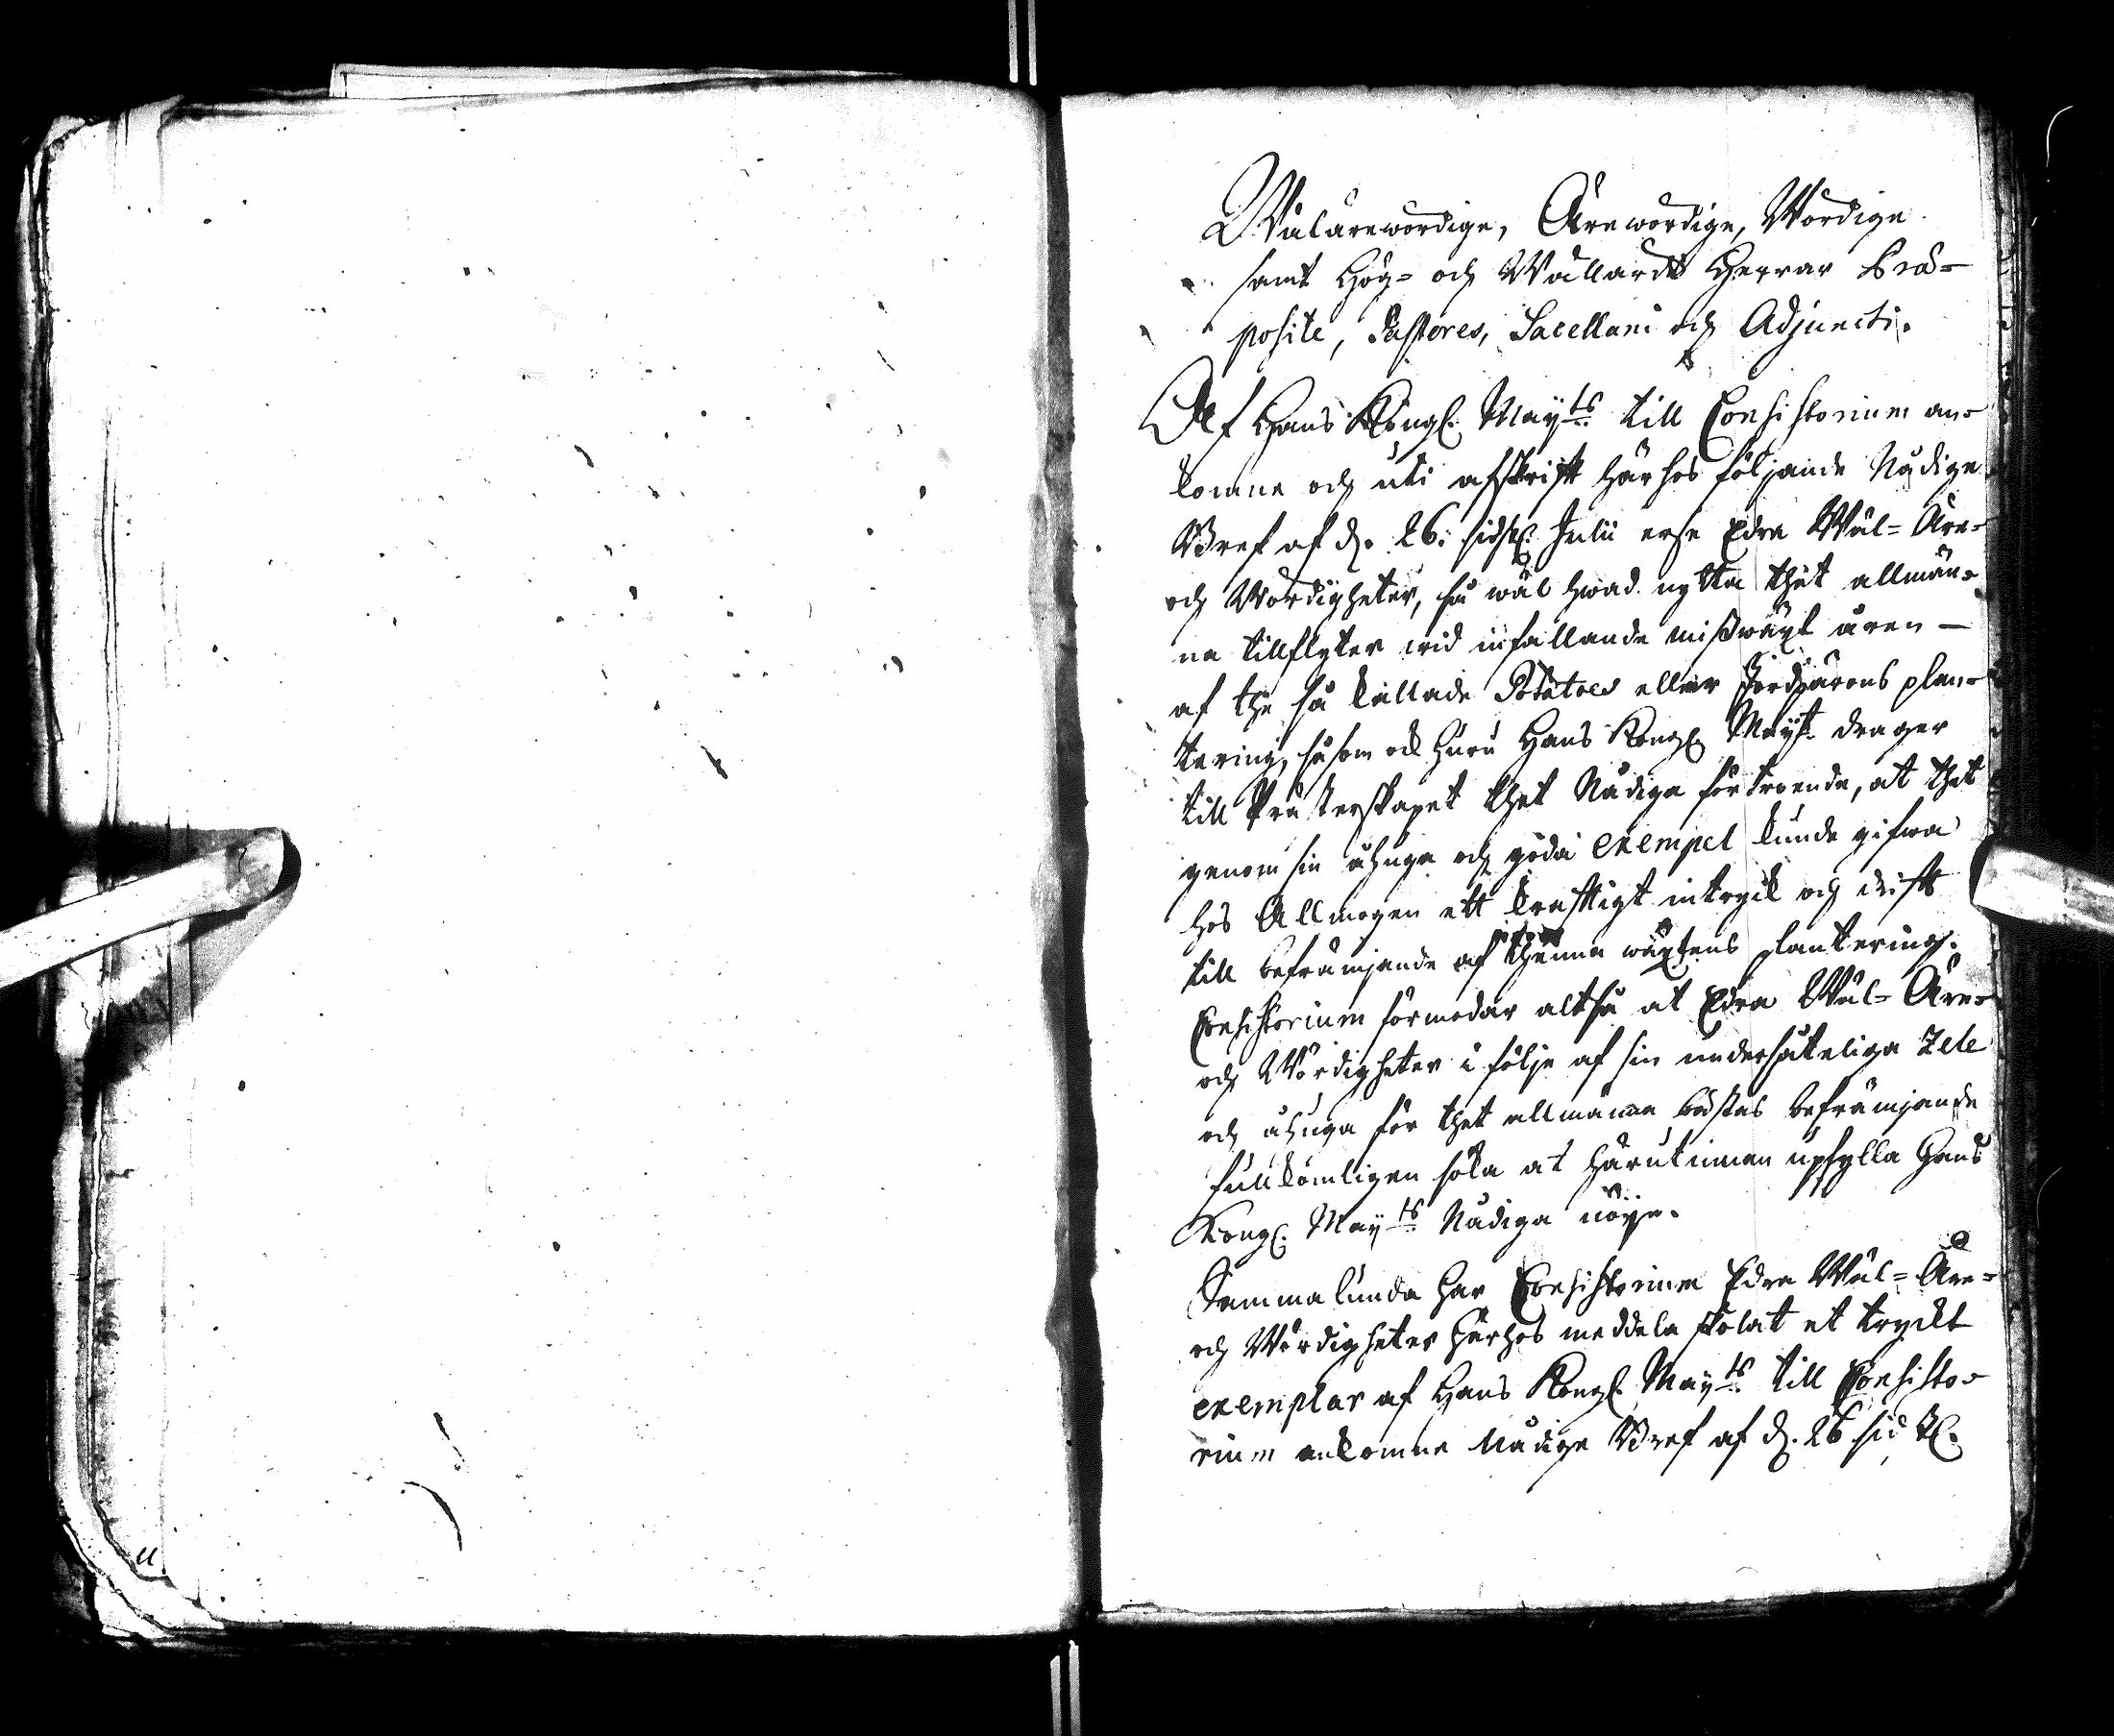 Wälärewördige, Ärewördige, Wördige
samt Hög= och Wällärde Herrar Præ=
positi, Pastores, Sacellani och Adjuncti.
Af Hans Kongl. May:ts till Consistorium an=
komne och uti afskrift härhos följande Nådige
Bref af d. 26. sidstl. Julii erse Edra Wäl= Äre=
och Wördigheter, så wäl hwad nytta thet allmän=
na tillflyter wid infallande missväxt åren –
af the så kallade Potatoes eller Jordpärons plan=
tering, såsom ock huru Hans Kongl. Mayt. drager
till Prästerskapet thet Nådiga förtroende, at thet
genom sin åhuga och goda exempel kunde gifwa
hos Allmogen ett kraftigt intryck och drift
till befrämjande af thenna wäxtens plantering.
Consistorium förmodar altså at Edra Wäl= Äre=
och Wördigheter i följe af sin undersåteliga Zele
och åhuga för thet allmänna bästas befrämjande
fullkomligen söka at härutinnan upfylla Hans
Kongl. May:ts Nådiga nöije.
Sammalunda har Consistorium Edra Wäl= Äre=
och Wördigheter härhos meddela skolat et tryckt
exemplar af Hans Kongl. May:ts till Consisto=
rium ankomne Nådige Bref af d. 26 sidstl.